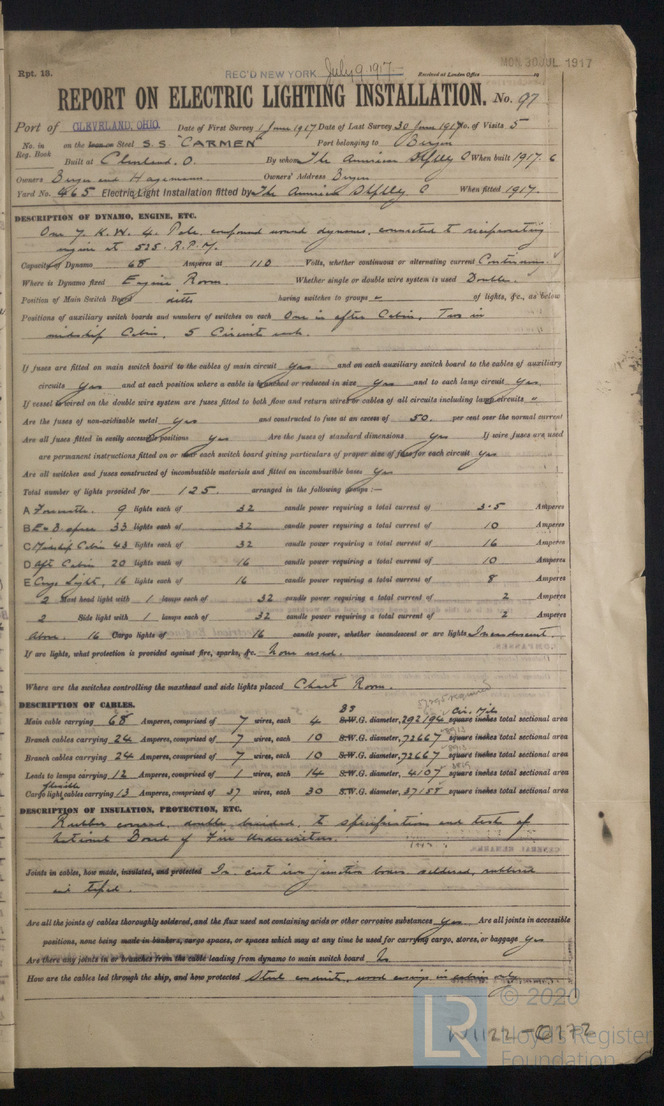 Rpt. 13.
REC'D NEW YORK July 9, 1917
Received at London Office
MON. 30 JUL 1917
REPORT ON ELECTRIC LIGHTING INSTALLATION. No. 97
Port of CLEVELAND, OHIO. Date of First Survey 1 June 1917 Date of Last Survey 30 June 1917 No. of Visits 5
No. in Reg. Book on the Iron or Steel S.S. "CARMEN" Port belonging to Bergen
Built at Cleveland. O. By whom The American Co When built 1917. 6
Owners Berger and Hagemann Owners' Address Bergen
Yard No. 465 Electric Light Installation fitted by The American Co When fitted 1917.
DESCRIPTION OF DYNAMO, ENGINE, ETC.
One 7 K.W. 4 Pole, compound wound dynamo, connected to reciprocating
engine at 525 R.P.M.
Capacity of Dynamo 68 Amperes at 110 Volts, whether continuous or alternating current Continuous
Where is Dynamo fixed Engine Room. Whether single or double wire system is used Double.
Position of Main Switch Board ditto having switches to groups " of lights, &c., as below
Positions of auxiliary switch boards and numbers of switches on each One in after Cabin, Two in
midship Cabin, 5 Circuits each.
If fuses are fitted on main switch board to the cables of main circuit Yes and on each auxiliary switch board to the cables of auxiliary
circuits Yes and at each position where a cable is branched or reduced in size Yes and to each lamp circuit Yes.
If vessel is wired on the double wire system are fuses fitted to both flow and return wires or cables of all circuits including lamp circuits "
Are the fuses of non-oxidisable metal Yes and constructed to fuse at an excess of 50. per cent over the normal current
Are all fuses fitted in easily accessible positions Yes Are the fuses of standard dimensions Yes If wire fuses are used
are permanent instructions fitted on or near each switch board giving particulars of proper size of fuse for each circuit Yes
Are all switches and fuses constructed of incombustible materials and fitted on incombustible bases Yes
Total number of lights provided for 125. arranged in the following groups :—
A Forecastle. 9 lights each of 32 candle power requiring a total current of 3.5 Amperes
B E & B space 33 lights each of 32 candle power requiring a total current of 10 Amperes
C Midship Cabin 43 lights each of 32 candle power requiring a total current of 16 Amperes
D Aft Cabin 20 lights each of 16 candle power requiring a total current of 10 Amperes
E Cargo Light, 16 lights each of 16 candle power requiring a total current of 8 Amperes
2 Mast head light with 1 lamps each of 32 candle power requiring a total current of 2 Amperes
2 Side light with 1 lamps each of 32 candle power requiring a total current of 2 Amperes
Above. 16 Cargo lights of 16 candle power, whether incandescent or arc lights Incandescent.
If arc lights, what protection is provided against fire, sparks, &c. None used.
Where are the switches controlling the masthead and side lights placed Chart Room.
DESCRIPTION OF CABLES.
Main cable carrying 68 Amperes, comprised of 7 wires, each 4 S.W.G. diameter, 292194 square inches total sectional area
Branch cables carrying 24 Amperes, comprised of 7 wires, each 10 S.W.G. diameter, 72667 square inches total sectional area
Branch cables carrying 24 Amperes, comprised of 7 wires, each 10 S.W.G. diameter, 72667 square inches total sectional area
Leads to lamps carrying 12 Amperes, comprised of 1 wires, each 14 S.W.G. diameter, 4107 square inches total sectional area
Cargo light flexible cables carrying 13 Amperes, comprised of 37 wires, each 30 S.W.G. diameter, square inches total sectional area
DESCRIPTION OF INSULATION, PROTECTION, ETC.
Rubber covered, double braided, to specification and tests of
National Board of Fire Underwriters.
Joints in cables, how made, insulated, and protected In cast iron junction boxes, soldered, rubbered
and taped.
Are all the joints of cables thoroughly soldered, and the flux used not containing acids or other corrosive substances Yes Are all joints in accessible
positions, none being made in bunkers, cargo spaces, or spaces which may at any time be used for carrying cargo, stores, or baggage Yes
Are there any joints in or branches from the cable leading from dynamo to main switch board No
How are the cables led through the ship, and how protected Steel conduits, wood casings in cabins only.
© 2020
LR
Lloyd's Register
Foundation
W1122-0172